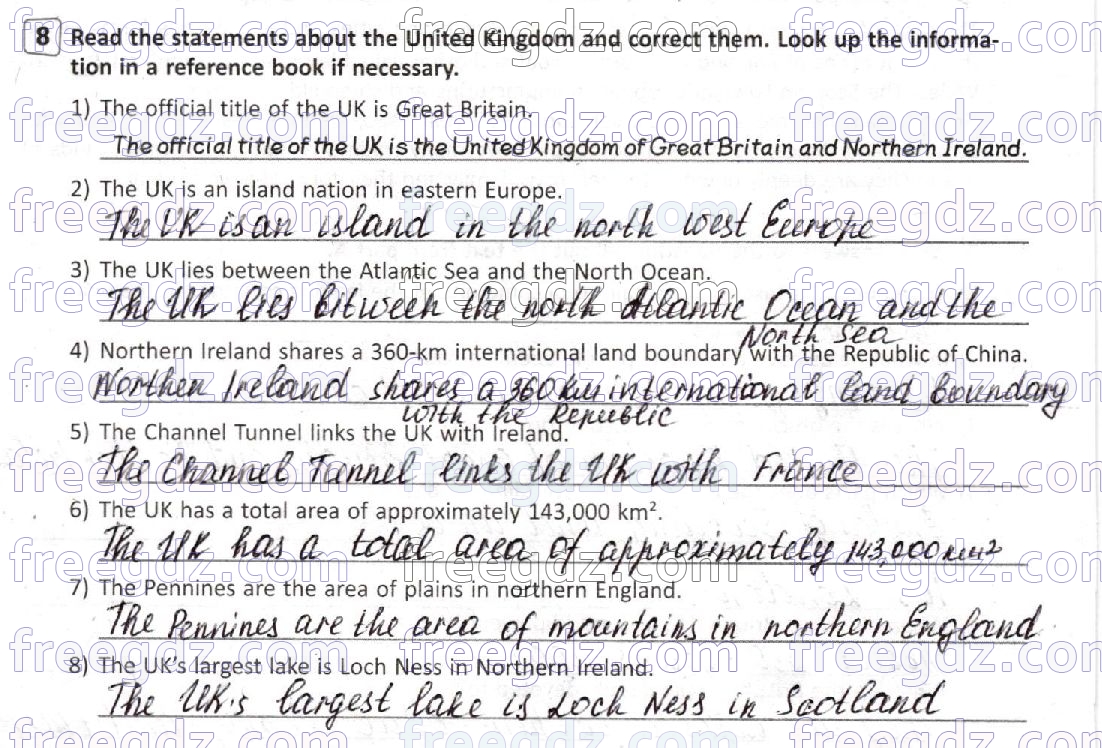 8 Read the statements about the United Kingdom and correct them. Look up the informa-
tion in a reference book if necessary.
1) The official title of the UK is Great Britain.
The official title of the UK is the United Kingdom of Great Britain and Northern Ireland.
2) The UK is an island nation in eastern Europe.
The UK is an island in the north west Europe
3) The UK lies between the Atlantic Sea and the North Ocean.
The UK lies bitween the north Atlantic Ocean and the
North Sea
4) Northern Ireland shares a 360-km international land boundary with the Republic of China.
Northen Ireland shares a 360 km international land boundary
with the Republic
5) The Channel Tunnel links the UK with Ireland.
The Channel Tunnel links the UK with France
6) The UK has a total area of approximately 143,000 km².
The UK has a total area of approximately 143,000 km²
7) The Pennines are the area of plains in northern England.
The Pennines are the area of mountains in northern England
8) The UK's largest lake is Loch Ness in Northern Ireland.
The UK's largest lake is Loch Ness in Scotland
freegdz.com